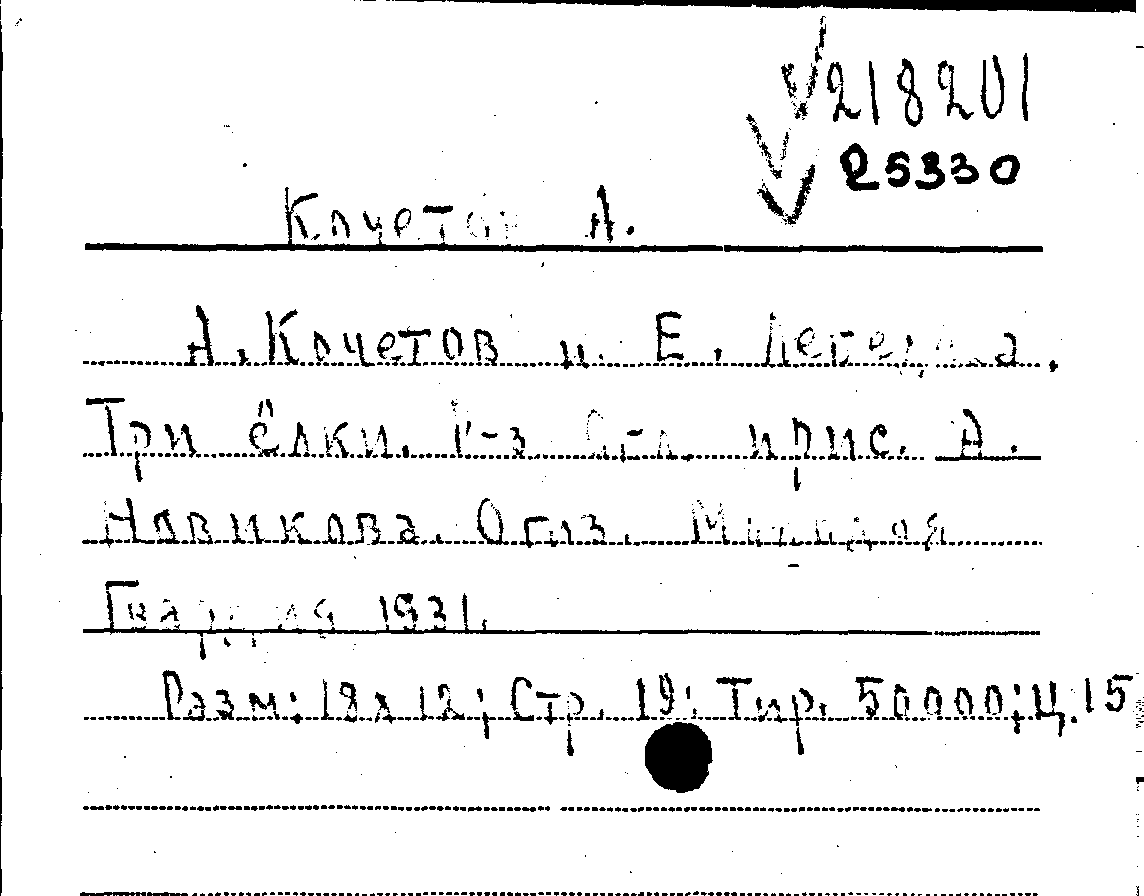 218201
25330
Кочетов А.
А. Кочетов и Е. Лебедева.
Три ёлки. Р-з Обл. и рис. А.
Новикова. Огиз. Молодая
Гвардия 1931.
Разм: 18х12; Стр. 19; Тир. 50000; ц. 15